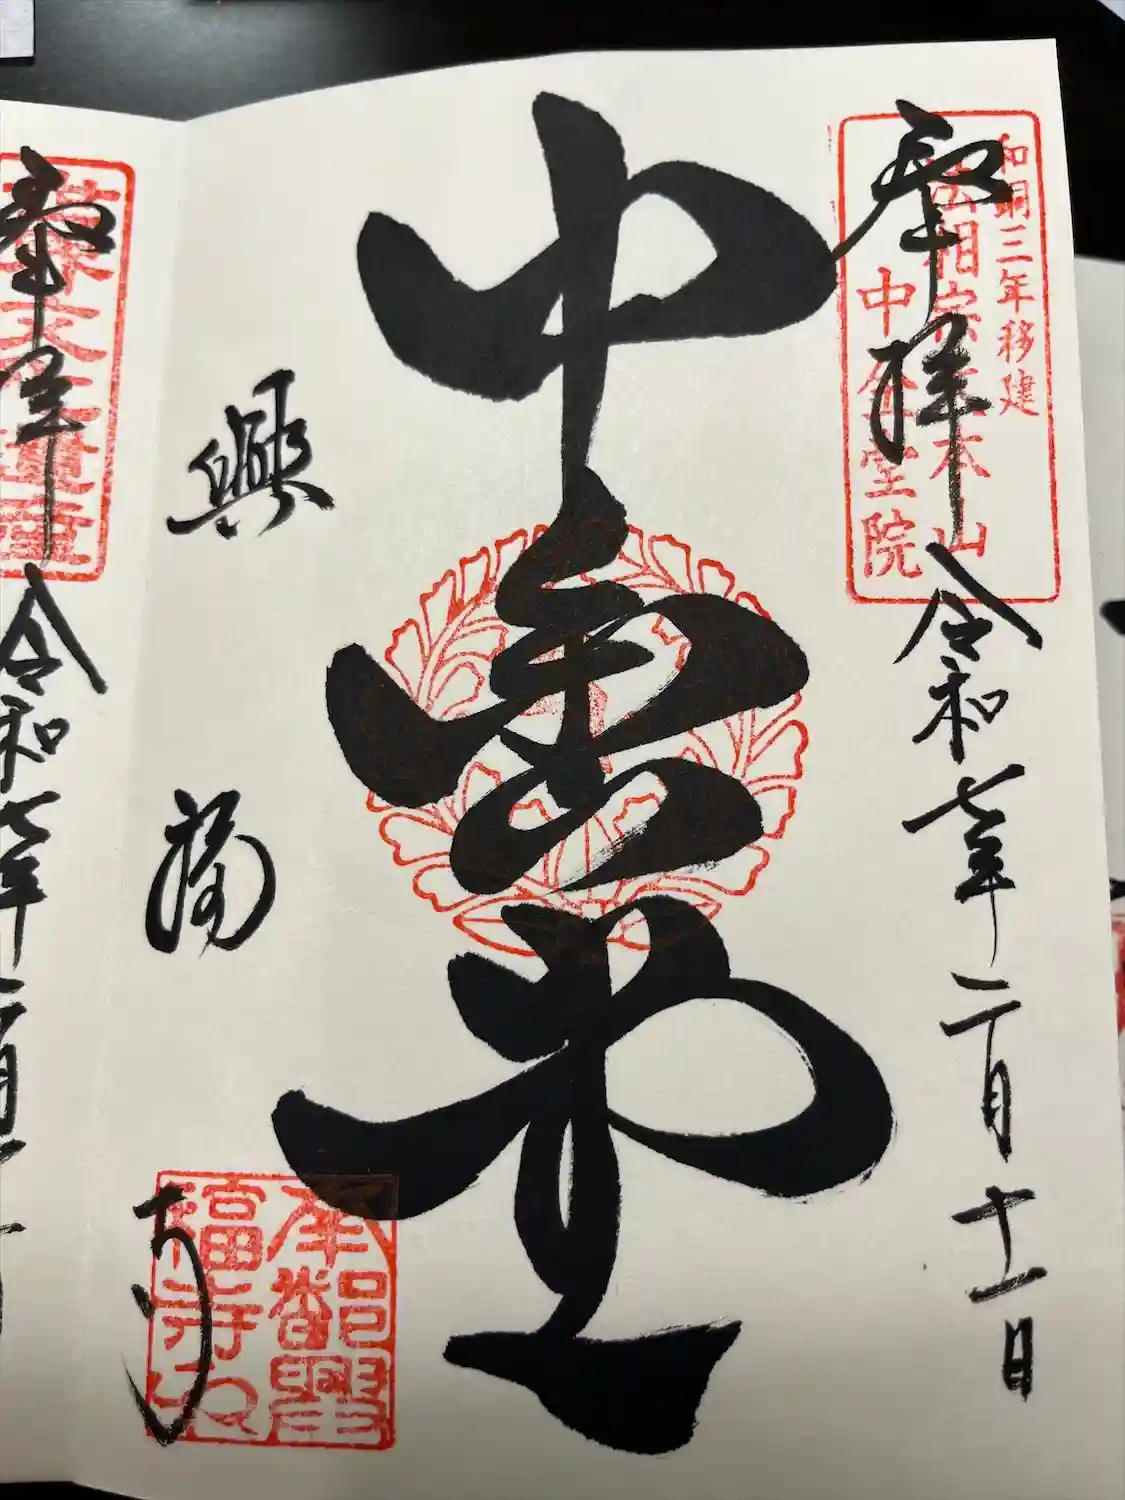 和銅三年移建
法相宗大本山
中金堂院
奉拝 令和七年二月十一日
中金堂
興福寺
南都興
福寺印
奉拝 令和七年二月